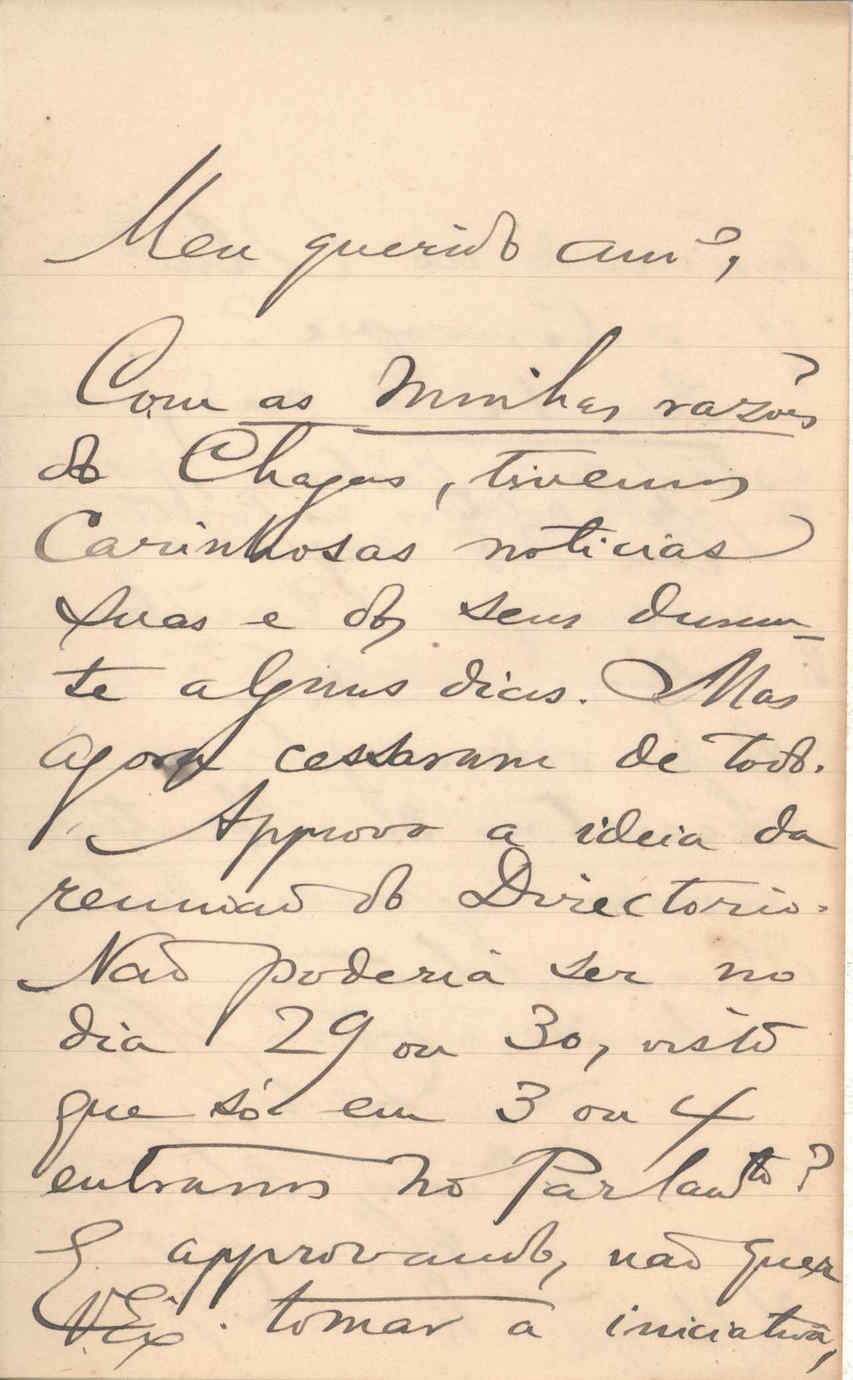 Meu querido amº,
Com as minhas razões
do Chagas, tivemos
Carinhosas noticias
suas e dos seus duran-
te alguns dias. Mas
agora cessaram de todo.
Approvo a ideia da
reunião do Directorio.
Não poderia ser no
dia 29 ou 30, visto
que só em 3 ou 4
entramos no Parlamto?
E approvando, não quer
V. Ex. tomar a iniciativa,